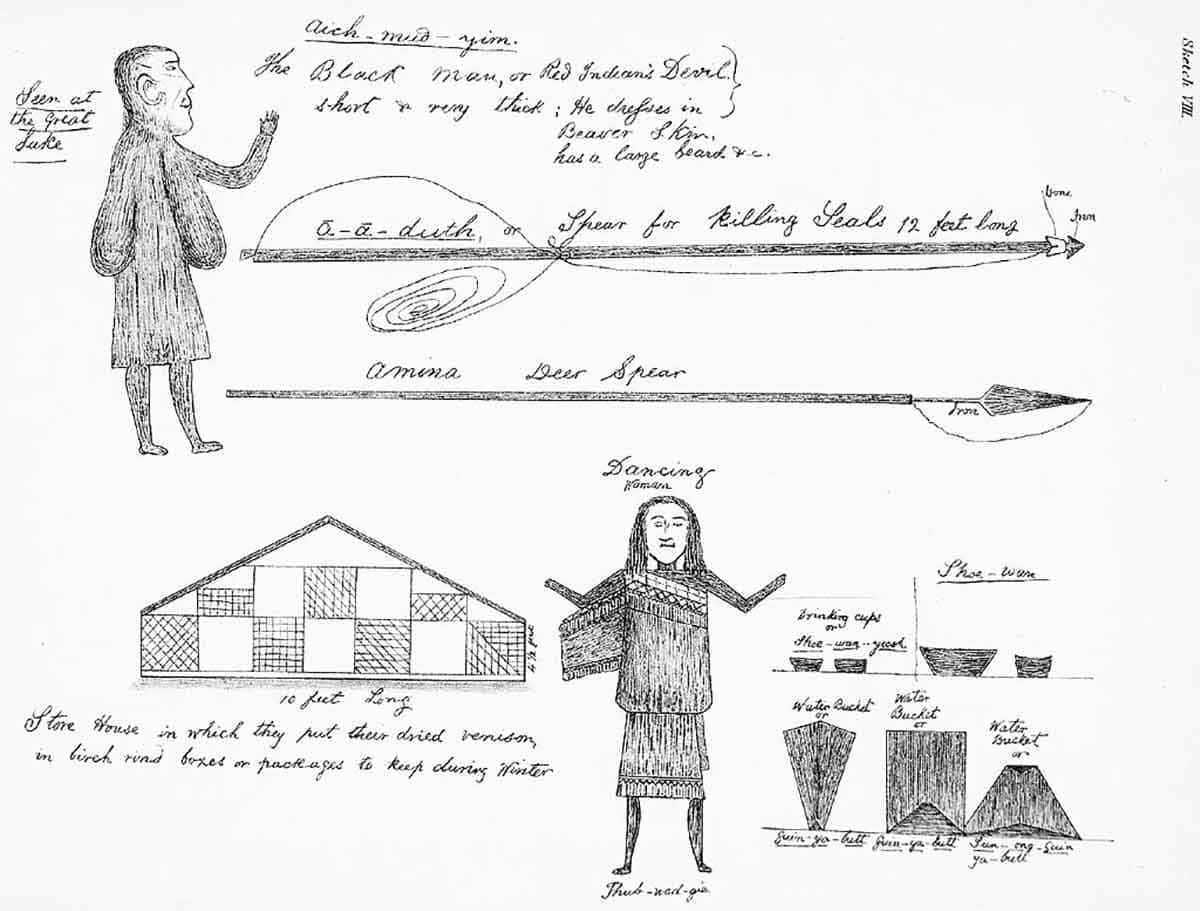 Sketch VIII.
Aich-mud-yim.
The Black man, or Red Indian's Devil.
short & very thick; He dresses in
Beaver Skin,
has a large beard &c.
Seen at
the Great
Lake
bone
Iron
ō-ā-duth, or Spear for Killing Seals 12 feet long
amina Deer Spear
Iron
Dancing
Woman
Thub-wed-gie
4½ feet
10 feet Long
Store House in which they put their dried venison,
in birch rind boxes or packages to keep during Winter
Shoe-wan
Drinking cups
or
Shoe-wan-yeesh
Water Bucket
or
Guin-ya-butt
Water
Bucket
or
Guin-ya-butt
Water
Bucket
or
Sun-ong-guin
ya-butt